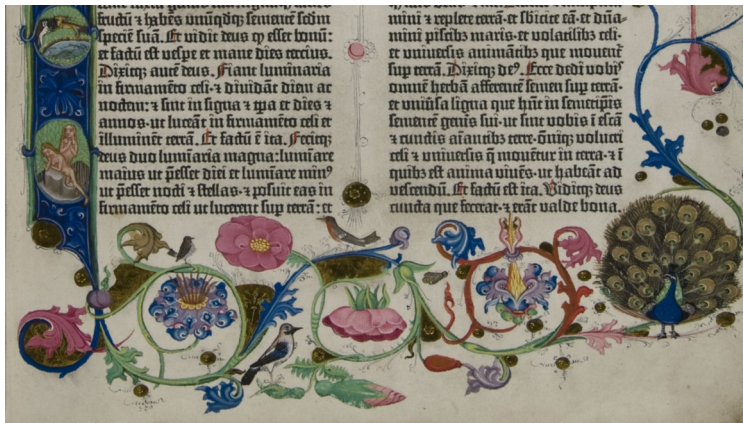 fructū ⁊ habēs unūqdq; sementē scdm
speciē suā. Et vidit deus ꝙ esset bonū:
et factū est vespe et mane dies tercius.
Dixitq; autē deus. Fiant luminaria
in firmamēto celi · ⁊ dividāt diem ac
noctem : ⁊ sint in signa ⁊ tp̄a et dies ⁊
annos · ut luceāt in firmamēto celi et
illuminēt terrā. Et factū ē ita. Fecitq;
deus duo lumīaria magna : lumīare
maius ut p̄esset diei et lumīare minꝰ
ut p̄esset nocti ⁊ stellas · ⁊ posuit eas in
firmamēto celi ut lucerent sup terrā : et
mini ⁊ replete terrā · et sbicite eā · et dn̄a-
mini piscibꝫ maris · et volatilibꝫ celi ·
et universis animātibꝫ que moventꝛ
sup terrā. Dixitq; deꝰ. Ecce dedi vobis
omnē herbā afferentē semen sup terrā ·
et univ̄sa ligna que hn̄t in semetip̄is
sementē genis sui · ut sint vobis ī escā
⁊ cunctis aīantibꝫ terre · oīniq; volucri
celi ⁊ universis q̄ moventꝛ in terra · ⁊ ī
quibꝫ est anima vivēs · ut habeāt ad
vescendū. Et factū est ita. Viditq; deus
cuncta que fecerat · ⁊ erāt valde bona.